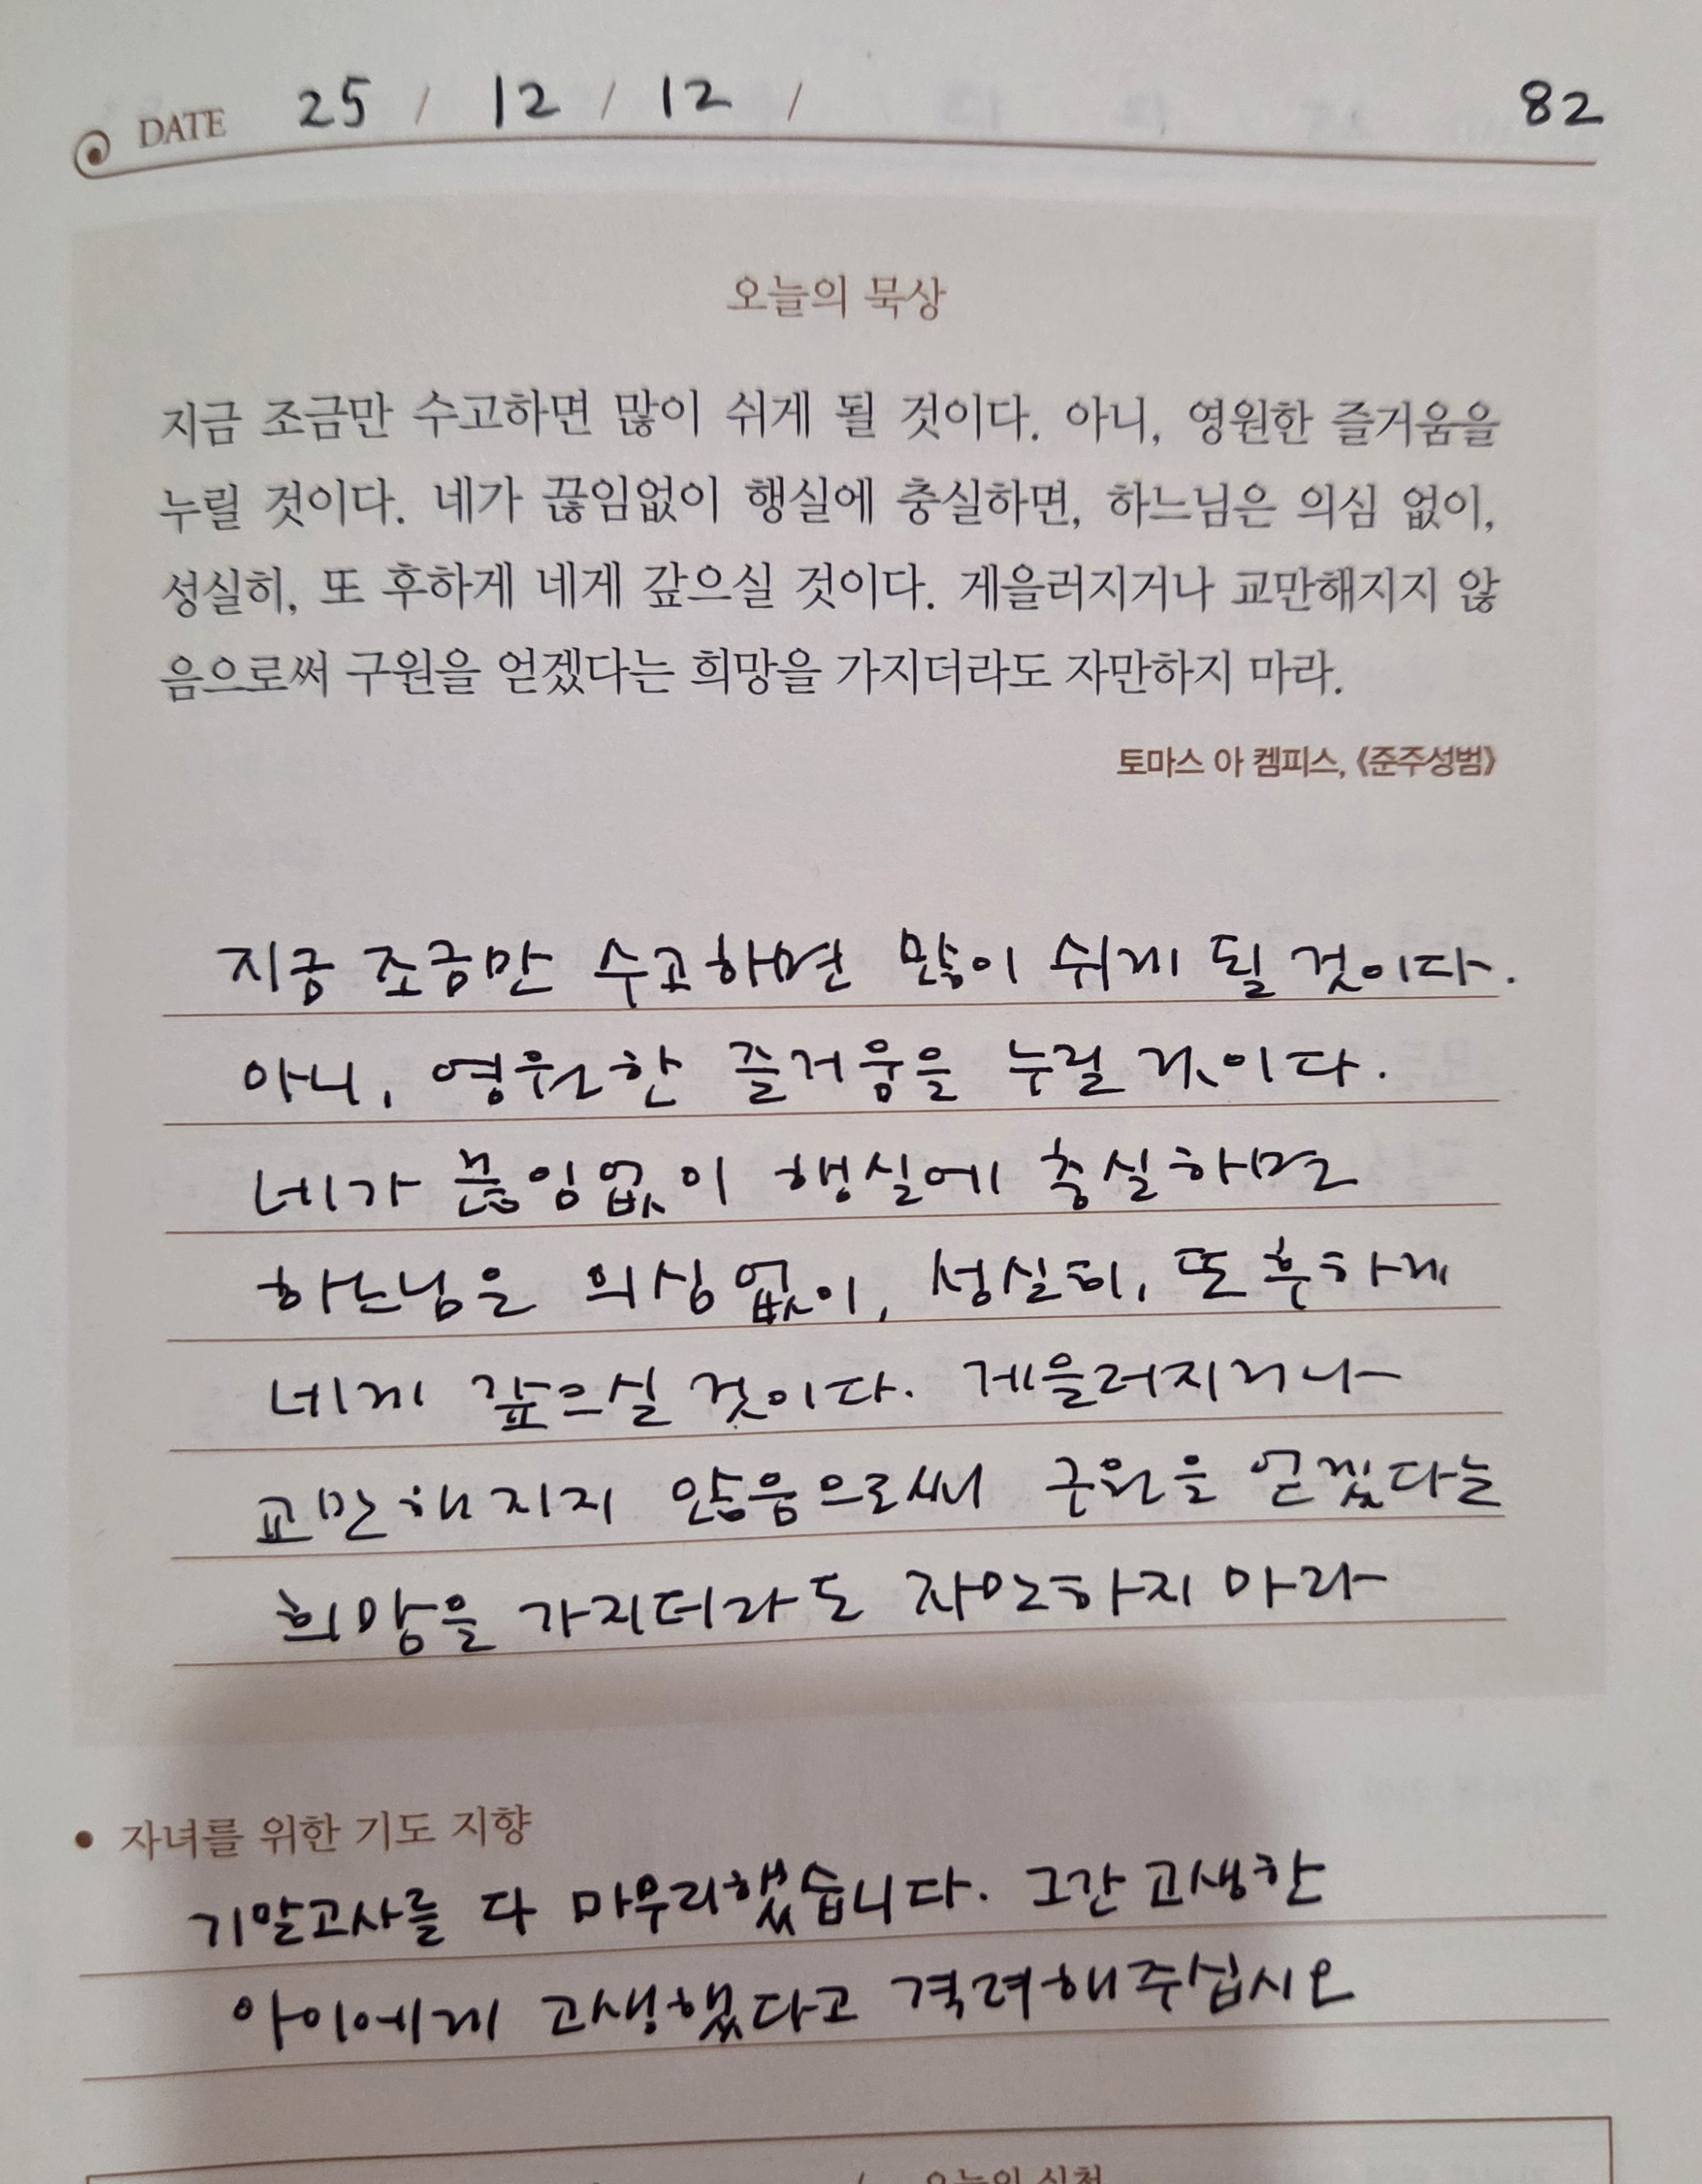 DATE 25 / 12 / 12 / 82
오늘의 묵상
지금 조금만 수고하면 많이 쉬게 될 것이다. 아니, 영원한 즐거움을
누릴 것이다. 네가 끊임없이 행실에 충실하면, 하느님은 의심 없이,
성실히, 또 후하게 네게 갚으실 것이다. 게을러지거나 교만해지지 않
음으로써 구원을 얻겠다는 희망을 가지더라도 자만하지 마라.
토마스 아 켐피스, 《준주성범》
지금 조금만 수고하면 많이 쉬게 될 것이다.
아니, 영원한 즐거움을 누릴 것이다.
네가 끊임없이 행실에 충실하면
하느님은 의심 없이, 성실히, 또 후하게
네게 갚으실 것이다. 게을러지거나
교만해지지 않음으로써 구원을 얻겠다는
희망을 가지더라도 자만하지 마라
• 자녀를 위한 기도 지향
기말고사를 다 마무리했습니다. 그간 고생한
아이에게 고생했다고 격려해주십시오
오늘의 실천